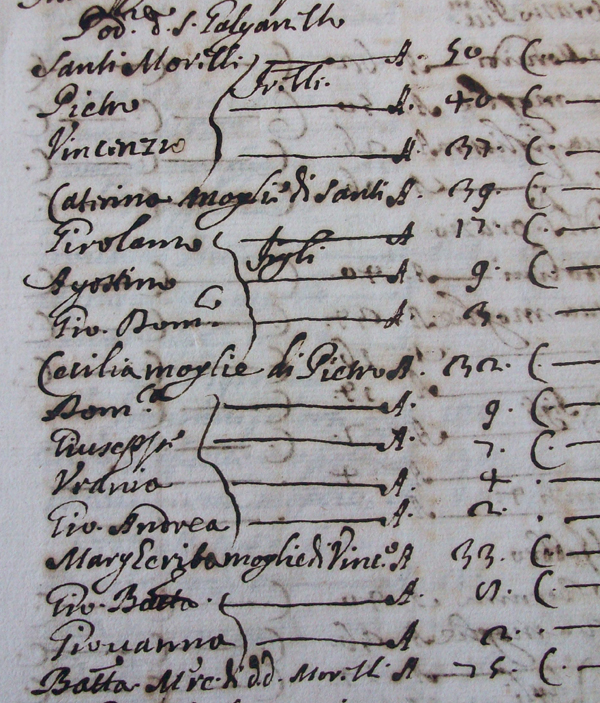 Pod. d. S. Galganello
Santi Morelli A. 50 C
Frelli
Pietro A. 40 C
Vincenzio A. 37 C
Caterina moglie di Santi A. 39 C
Girolamo A 17 C
figli
Agostino A 9 C
Gio. Dom.co A 3
Cecilia moglie di Pietro A. 32 C
Dom.ca A. 9 C
Giuseppe A. 7 C
Urania A 4
Gio. Andrea A. 2
Margherita moglie di Vinc.o A 33 C
Gio. Batta A. 8 C
Giovanna A 2
Batta M.re di dd. Morelli A 75 C